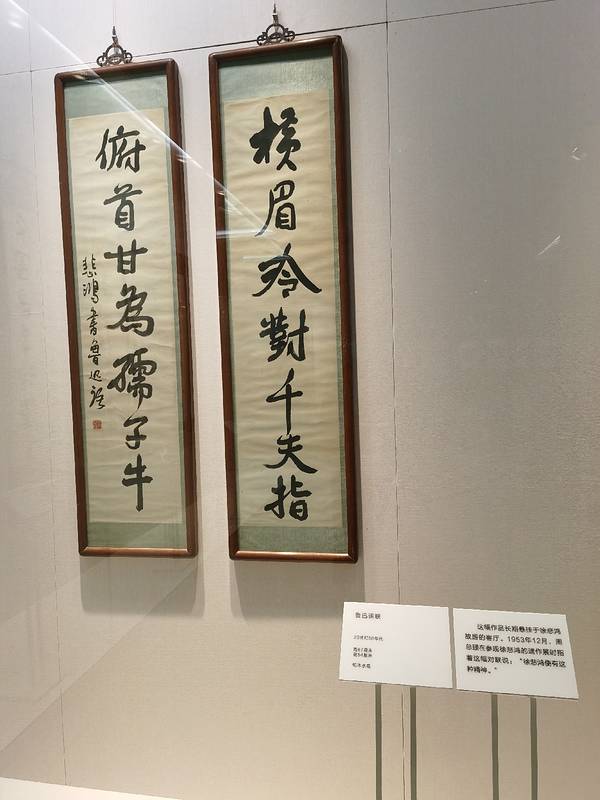 橫眉冷對千夫指
俯首甘為孺子牛
悲鴻書魯迅語
鲁迅诗联
20世纪50年代
纸本水墨
这幅作品长期悬挂于徐悲鸿
故居的客厅。1953年12月，周
总理在参观徐悲鸿的遗作展时指
着这幅对联说：“徐悲鸿便有这
种精神。”